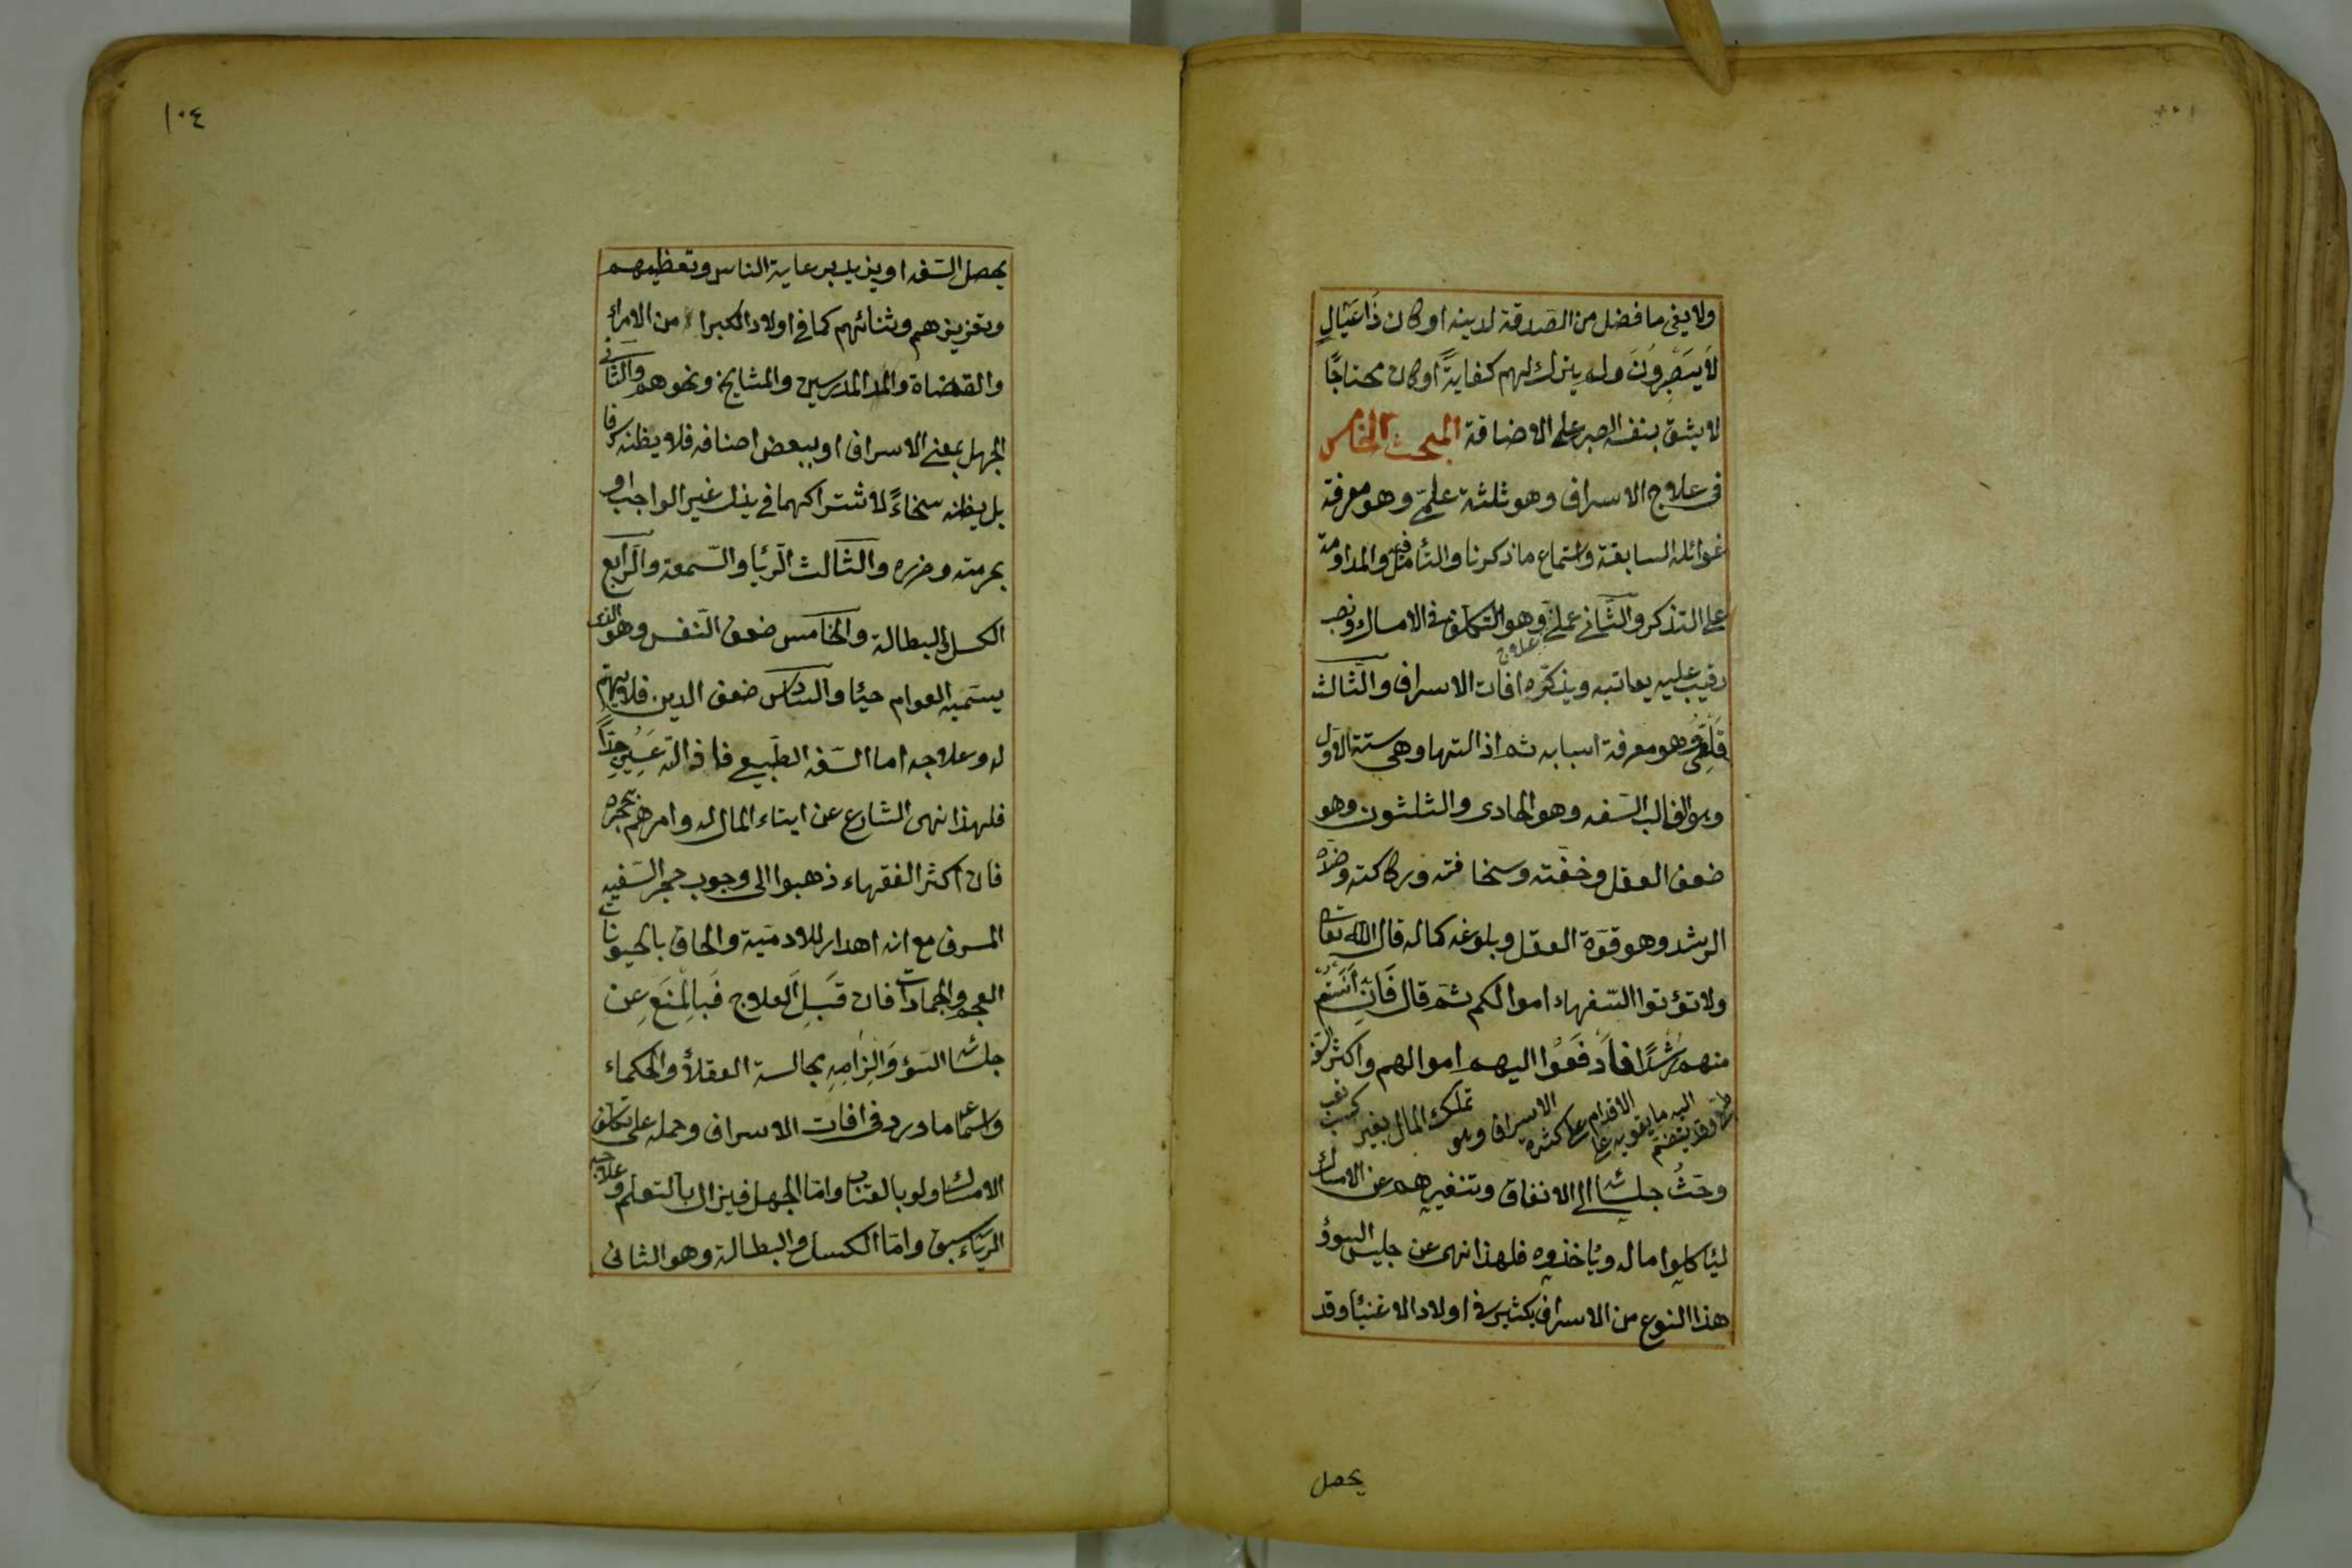 ولا يفى ما فضل من الصَدقة لدينه او كان ذَا عَيَالٍ
لاَ يَصْبِرُونَ ولم يترك لهم كفايةً او كان محتاجًا
لا يثق بنفسه الصبر على الاضاقة المبحث الخامس
فى علاج الاسراف وهو ثلثة علمىّ وهو معرفة
غوائله السابقة واستماع ما ذكرنا والتأمل فيه والمداومة
على التذكر والثّانى عملىّ وهو التكلف فى الامساك ونصب
رقيب عليه يعاتبه ويذكّره افات الاسراف والثّالث
علاج
قَلْعِىّ وهو معرفة اسبابه ثم ازالتها وهى ستة الاول
وهو الغالب السّفه وهو الحادى والثلثون وهو
ضعف العقل وخفّته وسخافته وركاكته وضدّه
الرشد وهو قوّة العقل وبلوغه كماله قال الله تعالى
ولا تؤتوا السّفهاء اموالكم ثم قال فَاِنْ اٰنَسْتُم
منهم رُشْدًا فَادْفَعُوْا اليهم اموالهم واكثر السّفه
طبعىّ وقد ينضمّ اليه ما يقويه على الاقدام على كثرة الاسراف وهو تملك المال بغير كسب وتعب
وحَثُّ جلسائه الى الانفاق وتنفيرهم عن الامساك
ليأكلوا ماله ويأخذوه فلهذا نهى عن جليس السوؤ
هذا النوع من الاسراف يكثير فى اولاد الاغنيا وقد
يحصل
١٠٤
يحصل السّفه او يزيد برعاية الناس وتعظيمهم
وتعزيزهم وثنائهم كما فى اولاد الكبراء من الامراء
والقضاة والمدرسين والمشايخ ونحوهم والثّانى
الجهل بمعنى الاسراف او ببعض اصنافه فلا يظنه سرفا
بل يظنه سخاءً لاشتراكهما فى بذل غير الواجب او
بحرمته وضرره والثّالث الرّئيا والسّمعة والرّابع
الكسل والبطالة والخامس ضعف النّفس وهو الذى
يسمّيه العوام حيئا والسّادس ضعف الدين فلا يهتم
له وعلاجه اما السّفه الطّبيعى فازالته عَسِيرٌ جدًّا
فلهذا نهى الشارع عن ايتاء المال له وامرهم بحجره
فان اكثر الفقهاء ذهبوا الى وجوب حجر السّفيه
المسرف مع انه اهدار للادميّة والحاق بالحيونات
العجم والجمادات فان قَبِلَ العلاج فَبِالْمَنْعِ عن
جلسائه السّوؤ وَاِلْزَامِهِ مجالسة العقلاء والحكماء
واستماع ما ورد فى افات الاسراف وحمله على تكلف
الامساك ولو بالعتاب وامّا الجهل فيزال بالتعلم وعلاجه
الريّاء سبق وامّا الكسل والبطالة وهو الثانى